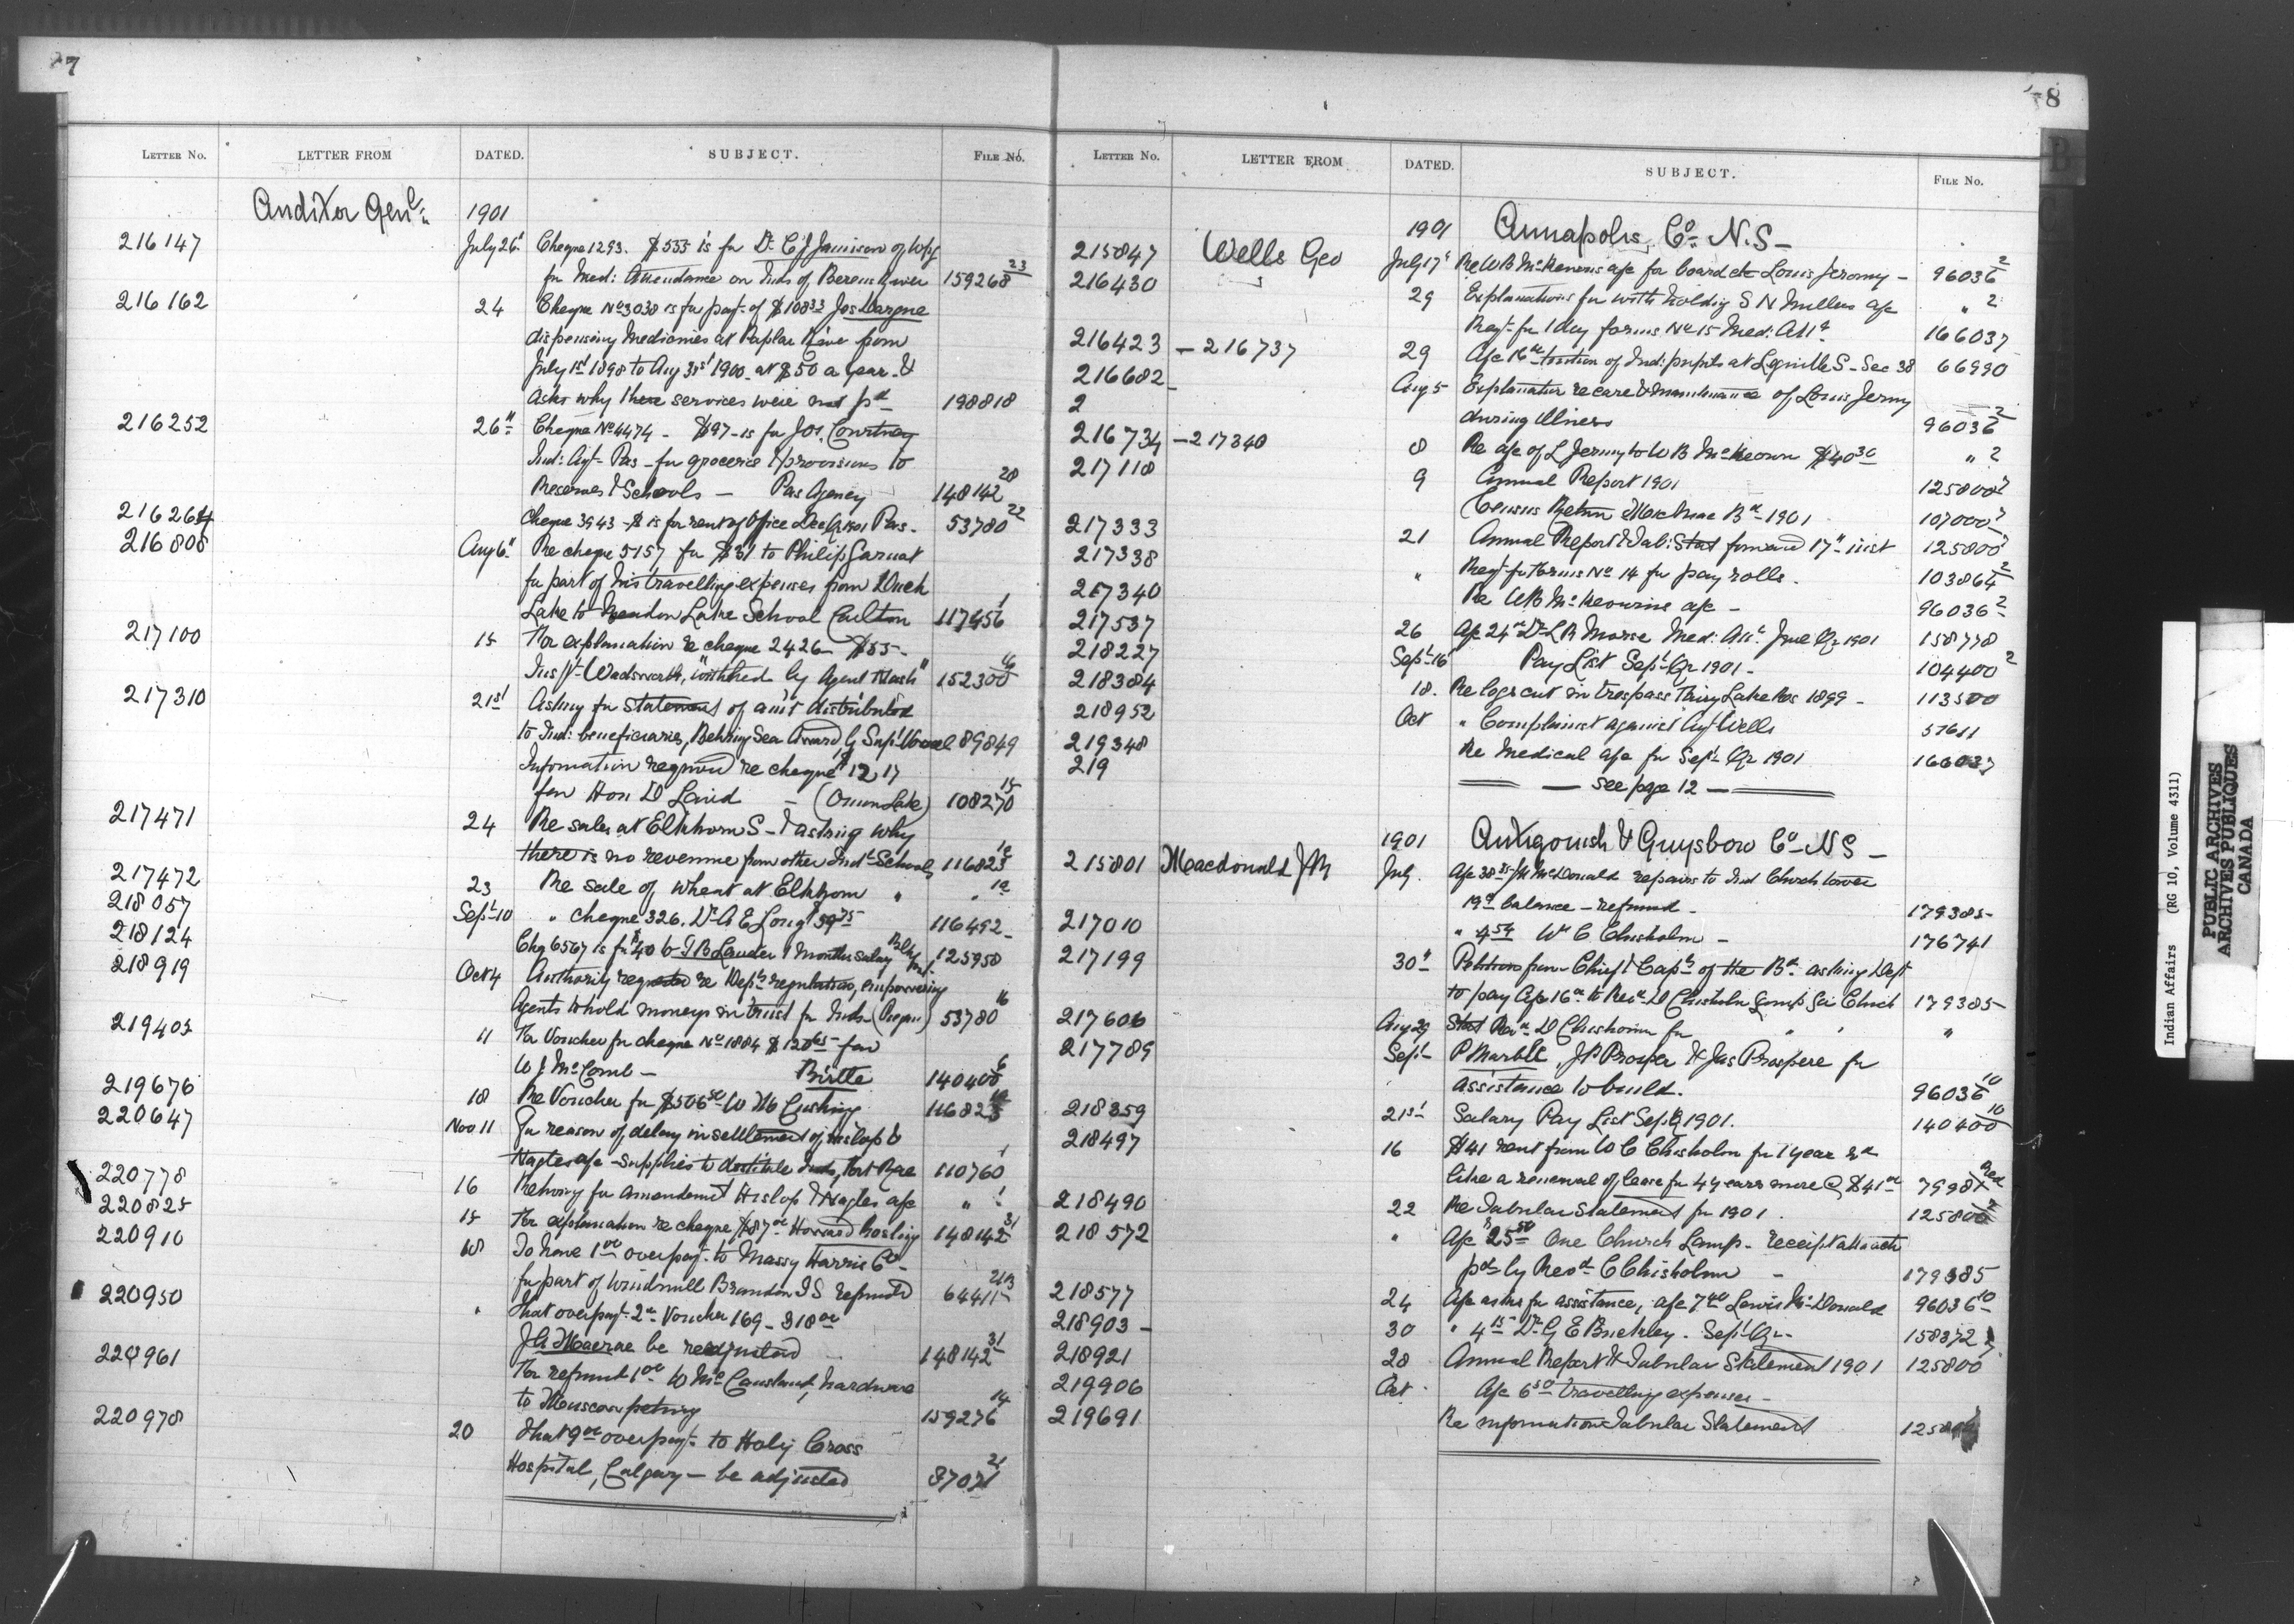 7
LETTER No. LETTER FROM DATED. SUBJECT. FILE No.
Auditor Genl. 1901
216147 July 26 Cheque 1293. $555 is for Dr. C J Jamieson of Wpg
for Med: Attendance on Inds of Berens River 159268 23
216162 24 Cheque No 3038 is for payt of $108 33 Jos
dispensing Medicines at Poplar River from
July 1st 1898 to Aug 31st 1900 at $50 a year &
asks why these services were not pd 198818
216252 26" Cheque No 4474 - $97 - is for Jos. Courtney
Ind: Agt - Pas - for groceries & provisions to
Reserves & Schools — Pas Agency 148142 28
216264 Cheque 3943 - $ is for rent of Office Dec Qr 1901 Pas. 53780 22
216808 Aug 6" Re cheque 5157 for $31 to Philip
for part of his travelling expenses from Duck
Lake to Meadow Lake School Carlton 117456 1
217100 15 For explanation re cheque 2426 - $55 -
Inspt Wadsworth, "witnessed by Agent Nash" 152300
217310 21st Asking for Statement of am't distributed
to Ind: beneficiaries, Behring Sea Award by Supt Vowel 89849
Information required re cheque 1217
for Hon D Laird - (Onion Lake) 108270 15
217471 24 Re sales at Elkhorn S - & asking why
there is no revenue from other Ind: Schools 116823
217472 23 Re sale of wheat at Elkhorn "
218057 Sept 10 " cheque 326. Dr A E Long $39 75 116492
218124 Chq 6567 is for $40 to J B Lauder 1 months salary 125958
218919 Oct 4 Authority requested re Dept regulations, empowering
Agents to hold moneys in trust for Inds - (Regan) 53780 16
219405 11 For Voucher for cheque No 1884 $120 65 - for
W J McComb - Birtle 140400 6
219676 18 Re Voucher for $506 50 W H Cushing 116823
220647 Nov 11 For reason of delay in settlement of Hislop &
Nagles a/c - Supplies to destitute Inds, Fort Rae 110760 1
220778 16 Retming for amendment Hislop & Nagles a/c " 1
220825 15 For explanation re cheque $87 00 Howard Gosling 148142 31
220910 18 To have 1 00 overpayt to Massey Harris Co -
for part of Windmill Brandon I S refunded 64411
220950 " That overpayt 2 00 Voucher 169 - 318 00
J A Macrae be readjusted 148142 31
220961 For refund 1 00 W McCausland, hardware
to Muscowpetung 159276 14
220978 20 That 9 00 overpayt to Holy Cross
Hospital, Calgary - be adjusted 87021 21
8
B
LETTER No. LETTER FROM DATED. SUBJECT. FILE No.
1901 Annapolis Co. N.S -
215847 Wells Geo July 17 Re W B McKeowns a/c for board etc Louis Jeromy - 96036 2
216430 29 Explanations for with holding S N Millers a/c " 2
Reqt for 1 day forms No 15 Med: Att. 166037
216423 - 216737 29 A/c 16 00 tuition of Ind: pupils at Lequille S - Sec 38 66990
216682 - Aug 5 Explanation re care & maintenance of Louis Jermy
2 during illness 96036 2
216734 - 217340 8 Re a/c of L Jermy to W B McKeown $40 30 " 2
217118 9 Annual Report 1901 125800 7
Census Return Micmac Bd 1901 107000 7
217333 21 Annual Report & Tab: Stat forward 17" inst 125800 7
217338 " Reqt for Forms No 14 for pay rolls. 103864 2
217340 Re W B McKeowns a/c - 96036 2
217537 26 A/c 24 00 Dr L R Morse Med: Att. June Qr 1901 158778
218227 Sept 16 Pay List Sept Qr 1901 - 104400 2
218384 18. Re logs cut in trespass Fairy Lake Res 1899 - 113500
218952 Oct " Complaint against Agt Wells 57611
219348 Re Medical a/c for Sept Qr 1901 166037
219 — see page 12 —
1901 Antigonish & Guysboro Co - N S -
215801 Macdonald J R July A/c 38 35 McDonald repairs to Ind Church tower
19 00 balance - refund - 179385
217010 " 4 54 W C Chisholm - 176741
217199 30" Petition from Chief & Capts of the Bd asking Dept
to pay A/c 16 00 to Revd D Chisholm Lamp for Church 179385
217606 Aug 29 Stat Revd D Chisholm for " " "
217789 Sept P Marble, J P Prosper & Jas Prospere for
assistance to build. 96036 10
218359 21st Salary Pay List Sept Qr 1901. 140400 10
218497 16 $41 rent from W C Chisholm for 1 year &
like a renewal of lease for 4 years more @ $41 00 7998
218490 22 Re Tabular Statement for 1901. 125800 7
218572 " A/c $25 50 One Church Lamp - receipt attach
pd by Revd C Chisholm - 179385
218577 24 A/c asks for assistance, a/c 7 40 Lewis McDonald 96036 10
218903 - 30 " 4 15 Dr G E Buckley. Sept Qr - 158372
218921 28 Annual Report & Tabular Statement 1901 125800 7
219906 Oct A/c 6 50 travelling expenses -
219691 Re information Tabular Statement
Indian Affairs (RG 10, Volume 4311)
PUBLIC ARCHIVES
ARCHIVES PUBLIQUES
CANADA